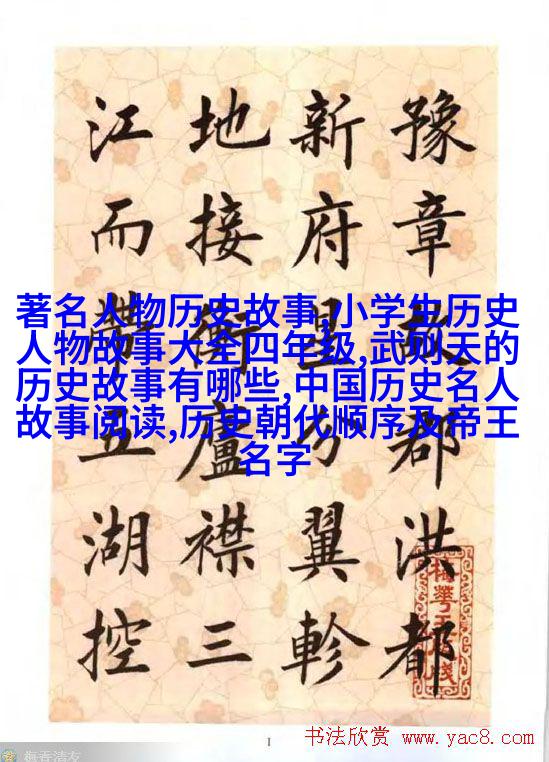 豫章故郡洪都
新府星分翼軫
地接衡廬襟三
江而帶五湖控
著名人物历史故事,小学生历史
人物故事大全四年级,武则天的
历史故事有哪些,中国历史名人
故事阅读,历史朝代顺序及帝王
名字
1
书法欣赏 www.yac8.com